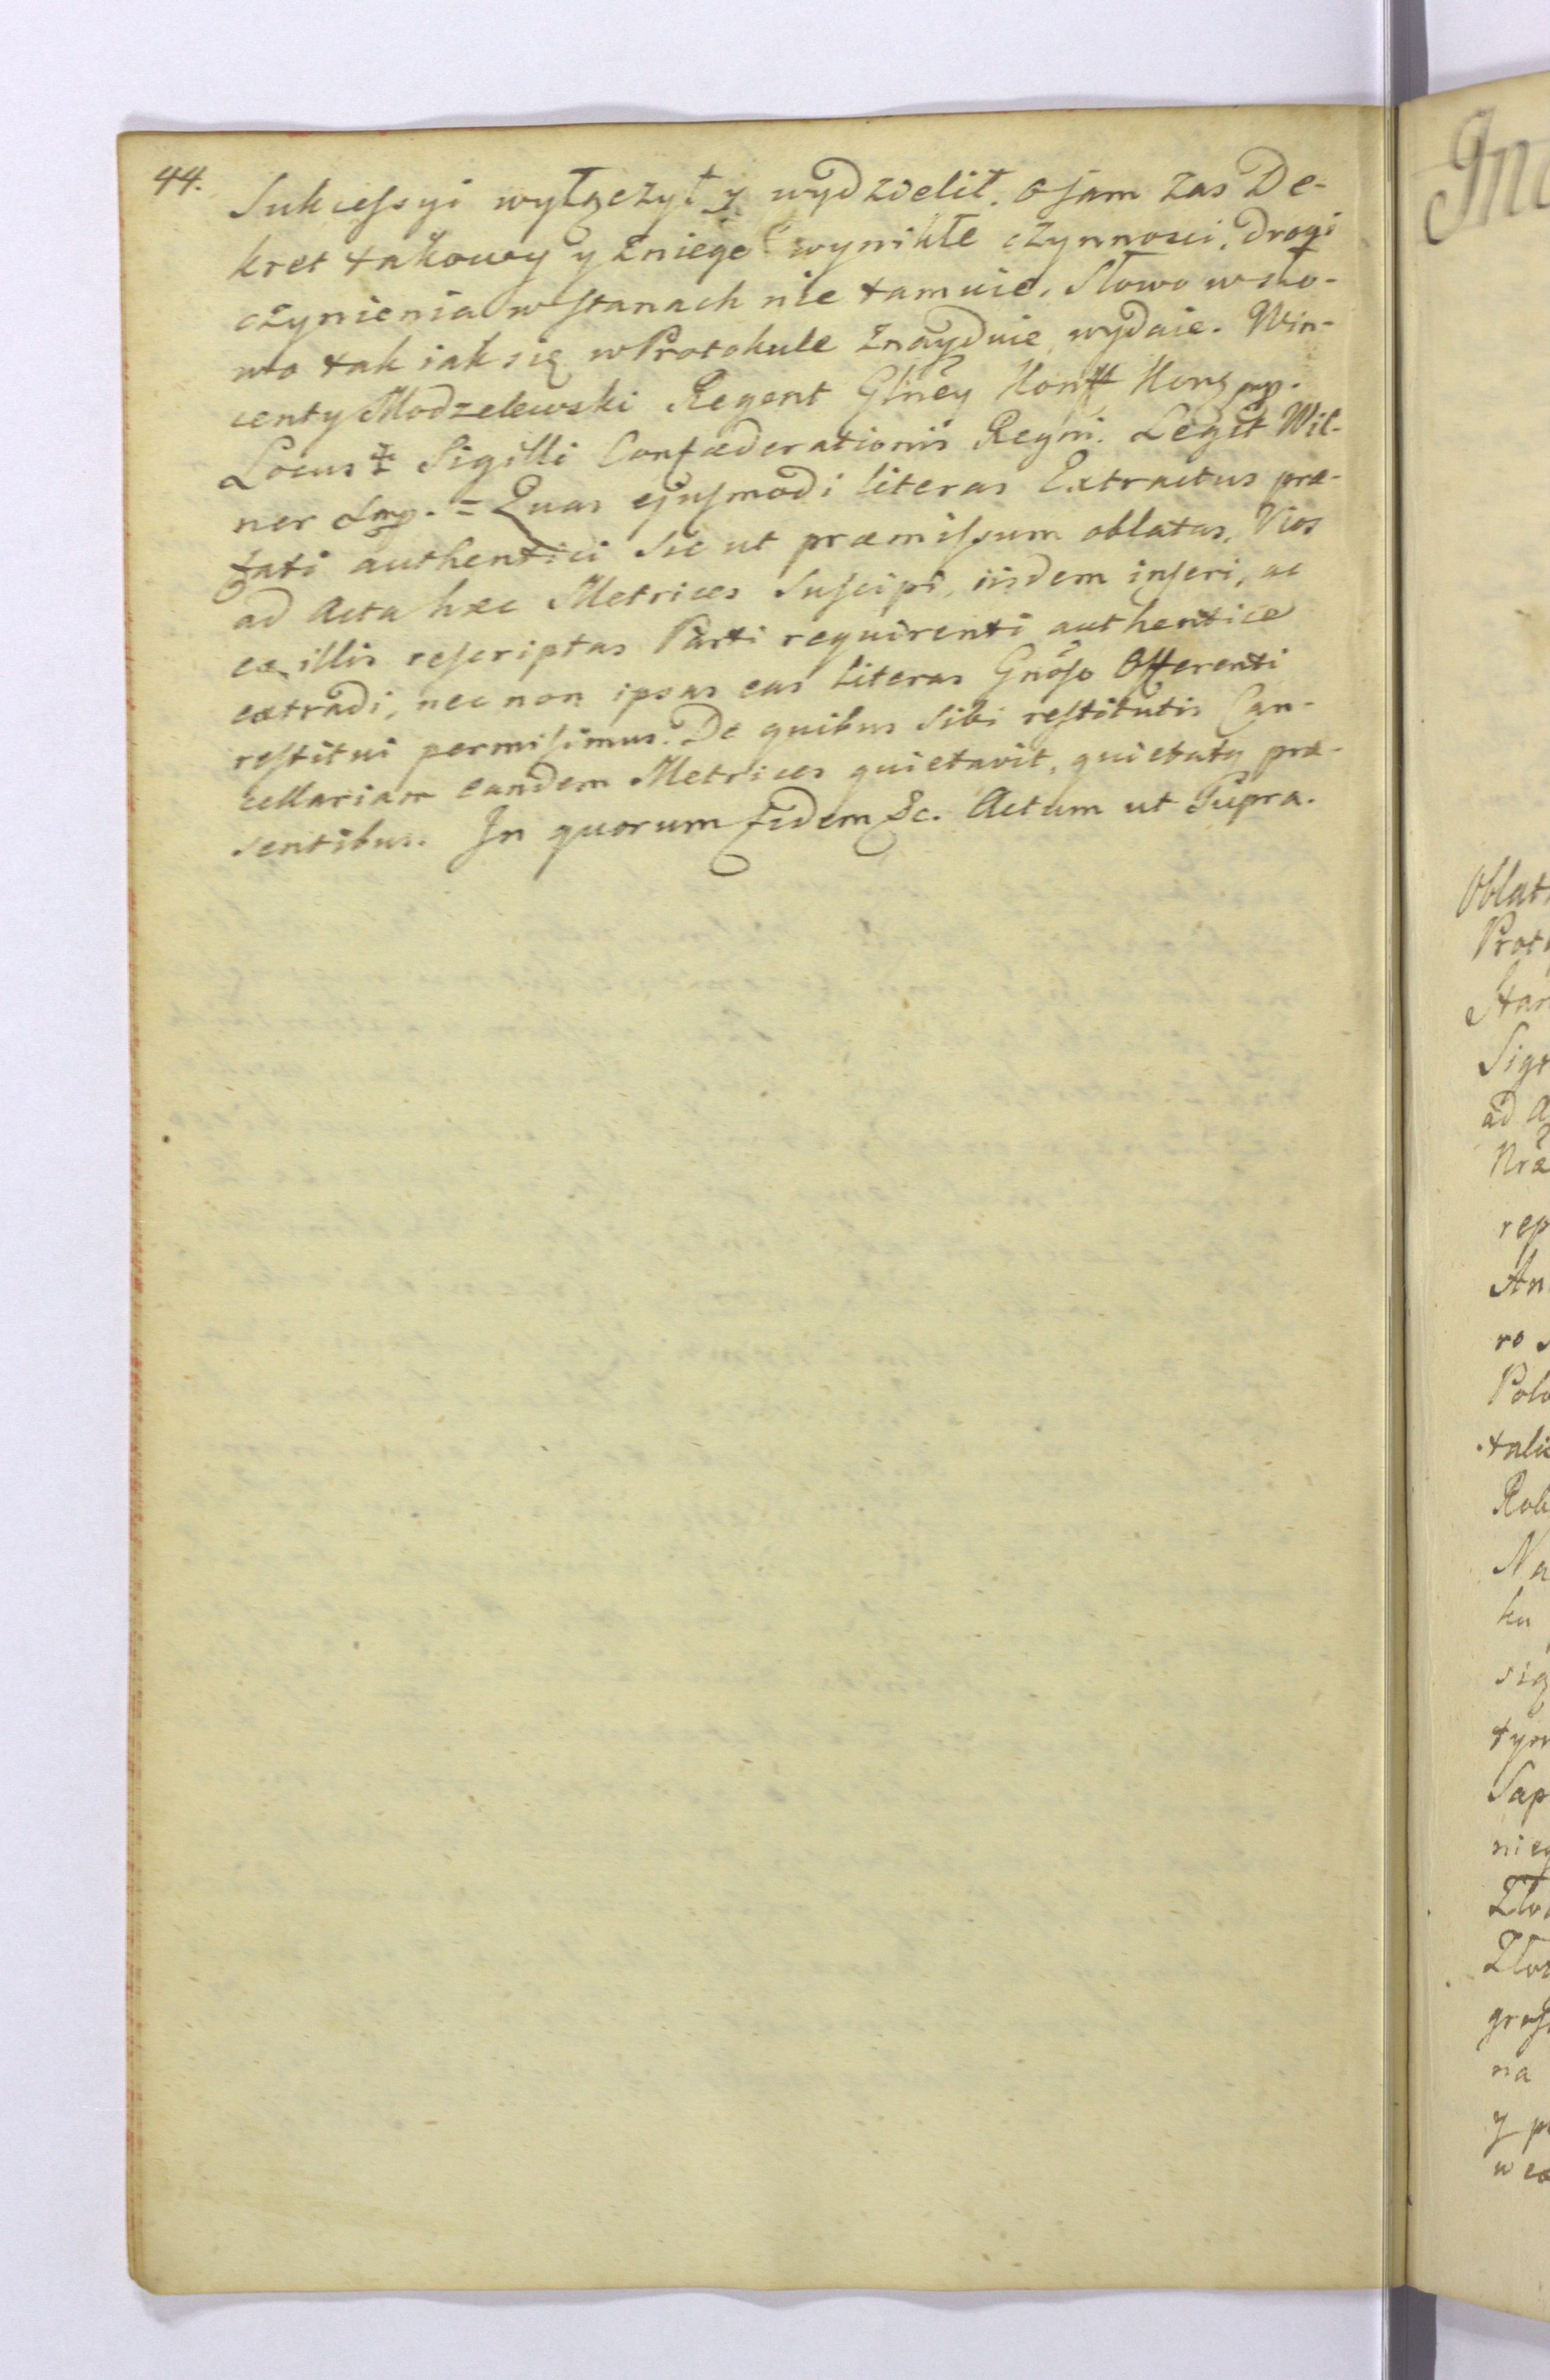 44.
Sukcessyi wyłączył y wydzielił. o sam zas De-
kret takowy y zniego wynikłe czynnosci, drogi
czynienia w stanach nie tamuie, Słowo w sło-
wo tak iak się w Protokule znayduie wydaie. Win-
centy Modzelewski Regent Glney Konff Kor mp.
Locus Sigilli Confœderationis Regni. Legit Wil-
ner mp. = Quas ejusmodi literas Extractus præ-
fati authentici sic ut præmissum oblatas, Nos
ad Acta hæc Metrices suscipi, iisdem inseri, ac
ex illis rescriptas Parti requirenti authentice
extradi, nec non ipsas eas literas Gnoso Offerenti
restitui permisimus. De quibus sibi restitutis Can-
cellariam eandem Metrices quietavit, quietatq præ-
sentibus. In quorum fidem &c. Actum ut Supra.
Oblat
Prot
Sig
ad A
rep
An
ro
Polo
Na
ku
Sap
na
y p